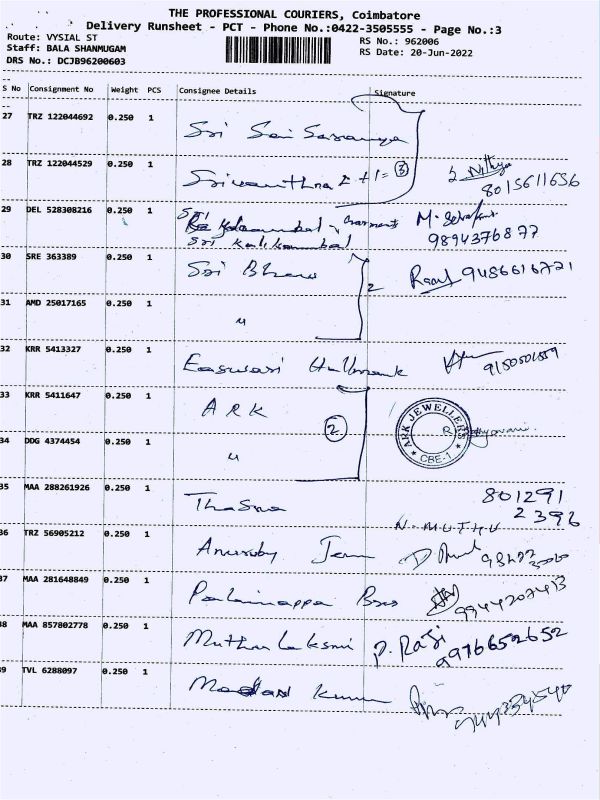 THE PROFESSIONAL COURIERS, Coimbatore
Delivery Runsheet - PCT - Phone No.:0422-3505555 - Page No.:3
Route: VYSIAL ST
RS No.: 962006
Staff: BALA SHANMUGAM
RS Date: 20-Jun-2022
DRS No.: DCJB96200603
S No Consignment No Weight PCS Consignee Details Signature
27 TRZ 122044692 0.250 1 Sri Sai Saranya
28 TRZ 122044529 0.250 1 2 + 1 = 3 Nithya
8015611656
29 DEL 528308216 0.250 1 Sri
Sri Kalikambal 9894376877
30 SRE 363389 0.250 1 Sri 2 9486616721
31 AMD 25017165 0.250 1 "
32 KRR 5413327 0.250 1 Easwari Hallmark 9150501559
33 KRR 5411647 0.250 1 ARK
2 ARK JEWELLERS CBE-1
34 DDG 4374454 0.250 1 "
35 MAA 288261926 0.250 1 801291
2396
N. MUTHU
36 TRZ 56905212 0.250 1
37 MAA 281648849 0.250 1 Palaniappa Bros 9944207413
38 MAA 857802778 0.250 1 Muthu Laksmi P. Raji
9976652652
39 TVL 6288097 0.250 1 Kumar